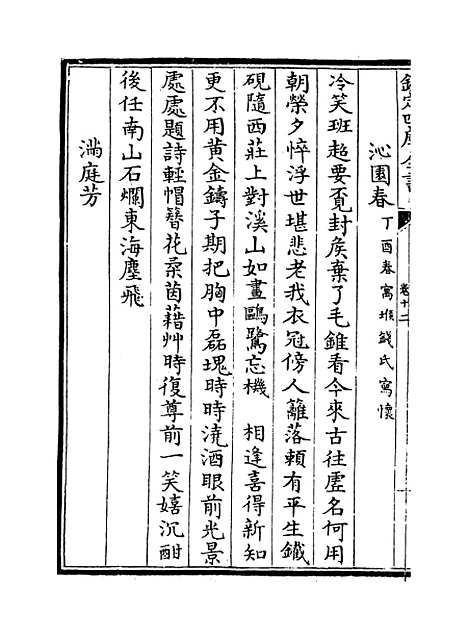 欽定四庫全書
卷十二
沁園春丁酉春寓堠錢氏寫懷
冷笑班超要覓封矦棄了毛錐看今來古往虛名何用
朝榮夕悴浮世堪悲老我衣冠傍人籬落賴有平生鐵
硯隨西莊上對溪山如畫鷗鷺忘機　相逢喜得新知
更不用黃金鑄子期把胸中磊塊時時澆酒眼前光景
處處題詩輕帽簪花柔茵藉艸時復尊前一笑嬉沉酣
後任南山石爛東海塵飛
滿庭芳